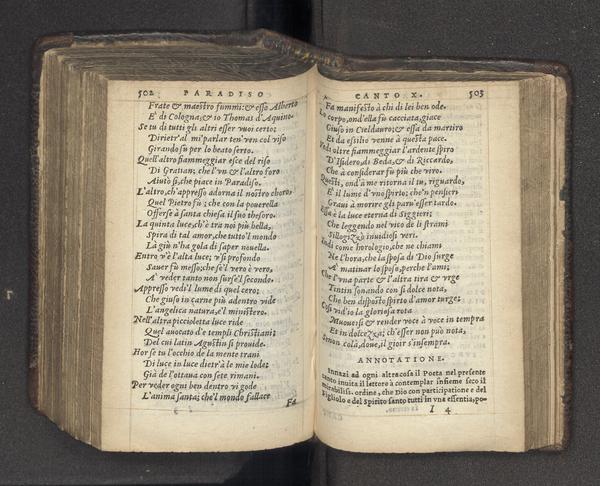 502 PARADISO
Frate & maestro fummi: & esso Alberto
E' di Cologna; & io Thomas d'Aquino.
Se tu di tutti gli altri esser vuoi certo;
Diretr'al mi' parlar ten' ven col viso
Girando su per lo beato serto.
Quell'altro fiammeggiar esce del riso
Di Gratian; che l'vn & l'altro foro
Aiutò sì, che piace in Paradiso.
L'altro, ch'appresso adorna il nostro choro,
Quel Pietro fù; che con la pouerella
Offerse à santa chiesa il suo thesoro.
La quinta luce, ch'è tra noi più bella,
Spira di tal amor, che tutto'l mondo
Là giù n'ha gola di saper nouella.
Entro v'è l'alta luce; v'sì profondo
Sauer fù messo; che se'l vero è vero,
A' veder tanto non surse'l secondo.
Appresso vedi'l lume di quel cero;
Che giuso in carne più adentro vide
L'angelica natura, e'l ministero.
Nell'altra piccioletta luce ride
Quel auocato d'e tempii Christiani;
Del cui latin Agustin si prouide.
Hor se tu l'occhio de la mente trani
Di luce in luce dietr'à le mie lode;
Già de l'ottaua con sete rimani.
Per veder ogni ben dentro vi gode
L'anima santa; che'l mondo fallace
Fa
CANTO X. 503
Fa manifesto à chi di lei ben ode.
Lo corpo, ond'ella fù cacciata, giace
Giuso in Cieldauro; & essa da martiro
Et da essilio venne à questa pace.
Vedi oltre fiammeggiar l'ardente spiro
D'Isidero, di Beda, & di Riccardo,
Che à considerar fù più che viro.
Questi, ond'à me ritorna il tu, riguardo,
E' il lume d'vno spirto; che'n pensieri
Graui à morire gli paru'esser tardo.
Essa è la luce eterna di Siggieri;
Che leggendo nel vico de li strami
Sillogizzò inuidiosi veri.
Indi come horologio, che ne chiami
Ne l'hora, che la sposa di Dio surge
A' matinar lo sposo, perche l'ami;
Che l'vna parte & l'altra tira & vrge
Tintin sonando con sì dolce nota,
Che ben disposto spirto d'amor turge;
Così vid'io la gloriosa rota
Muouersi & render voce à voce in tempra
Et in dolcezza; ch'esser non può nota,
Senon colà, doue, il gioir s'insempra.
ANNOTATIONE.
Innazi ad ogni altra cosa il Poeta nel presente
canto inuita il lettore à contemplar insieme seco il
mirabiliss. ordine, che Dio con participatione e del
Figliolo e del Spirito santo tutti in vna essentia, po-
I 4